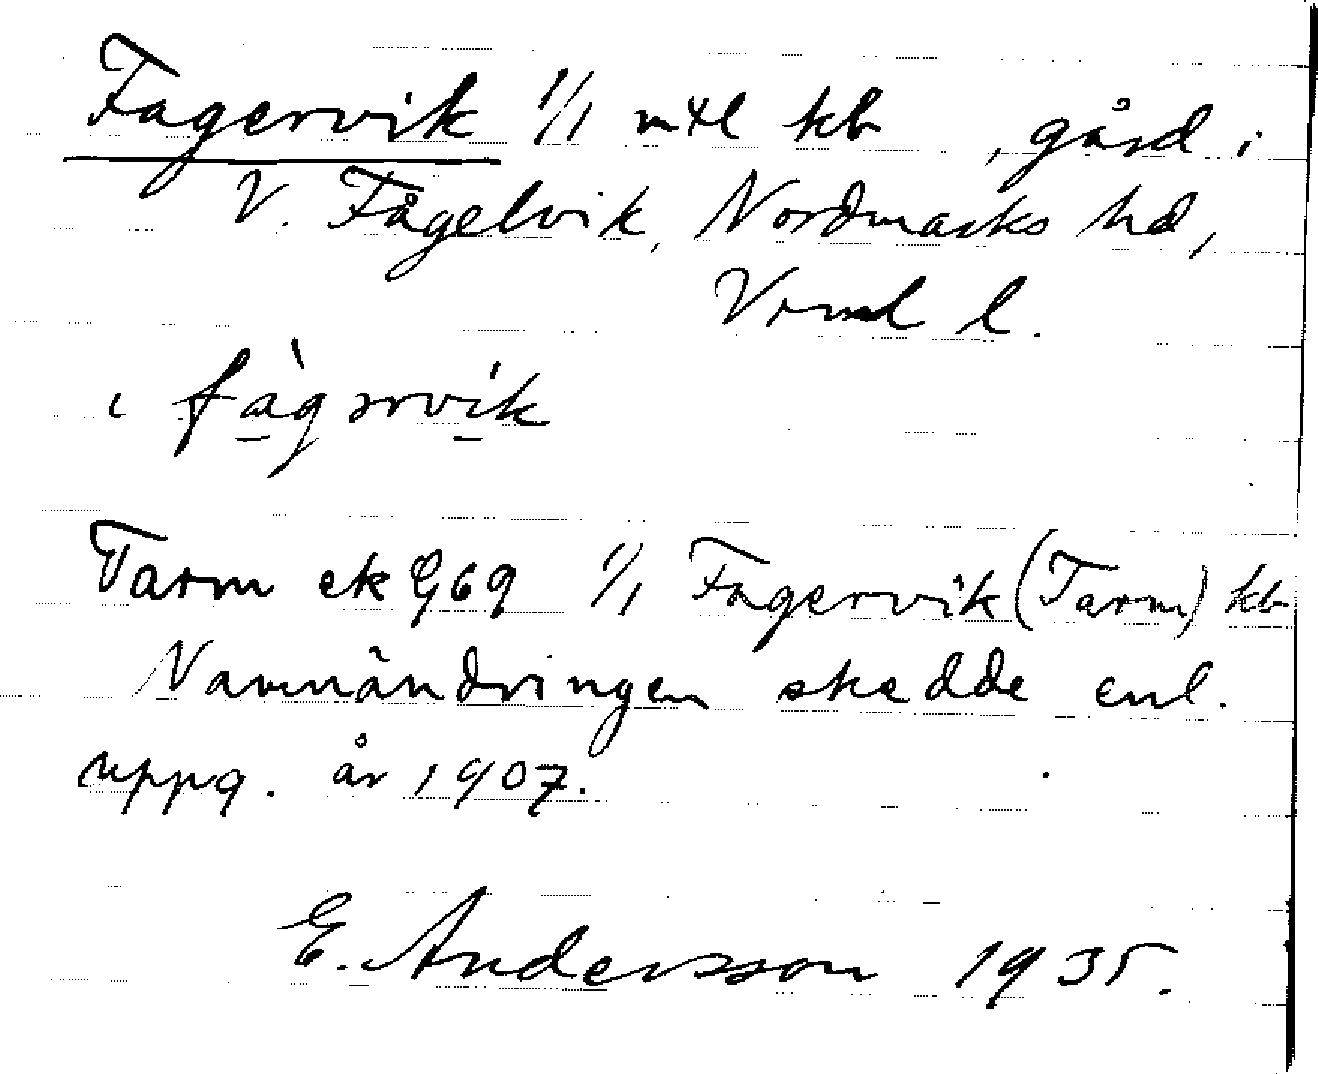 Fagervik 1/1 mtl kb, gård i
V. Fågelvik, Nordmarks hd,
Vrml l.
i fàgərvík
Tarm ek 969 1/1 Fagervik (Tarm) kb
Namnändringen skedde enl.
uppg. år 1907.
E. Andersson 1935.